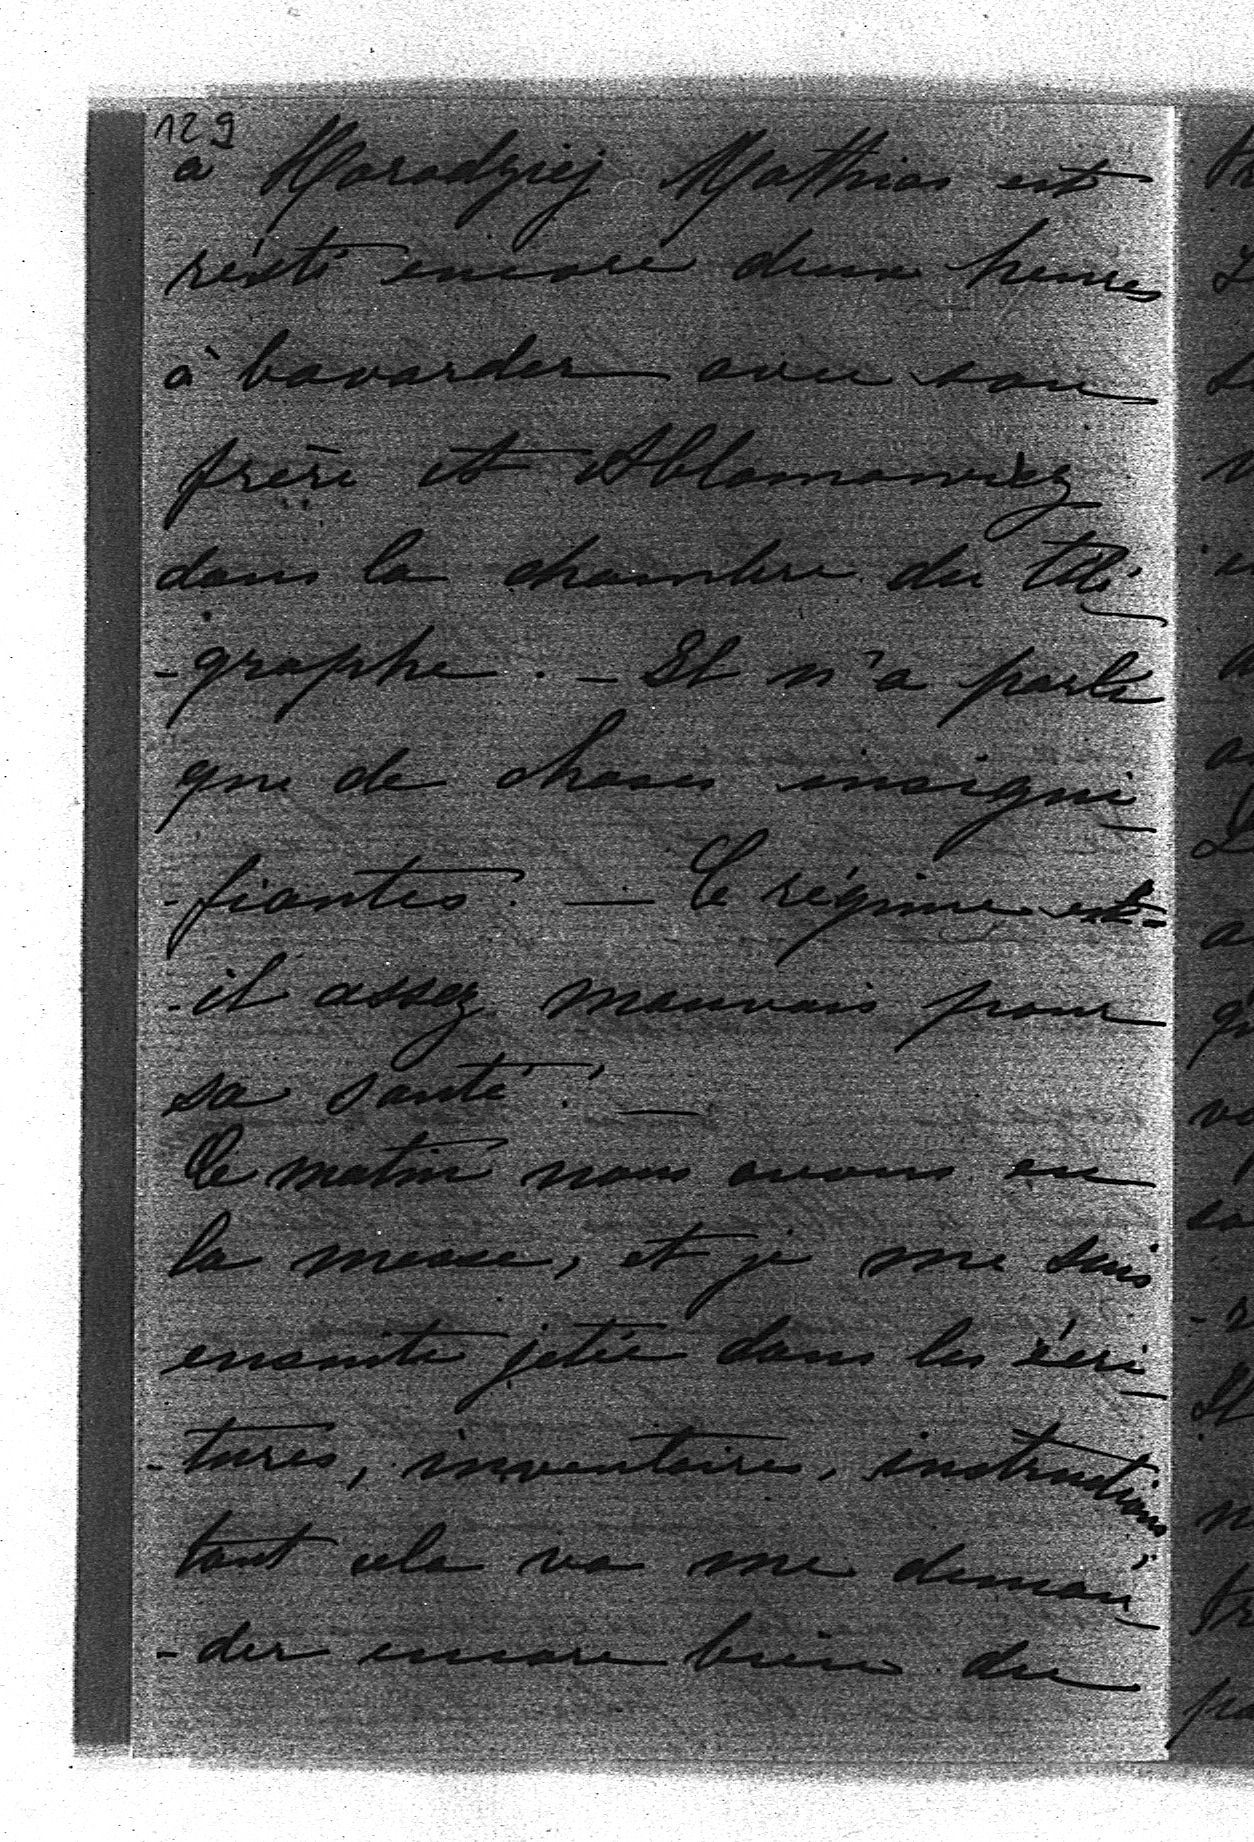 129
a Horodziej Mathias est
resté encore deux heures
à bavarder avec son
frère et Ablamowicz
dans la chambre du télé-
-graphe. — Il n'a parlé
que de choses insigni-
-fiantes. — Ce régime est-
-il assez mauvais pour
sa santé! —
Ce matin nous avons eu
la messe, et je me suis
ensuite jetée dans les écri-
-tures, inventaires, instructions,
tout cela va me deman-
-der encore bien du